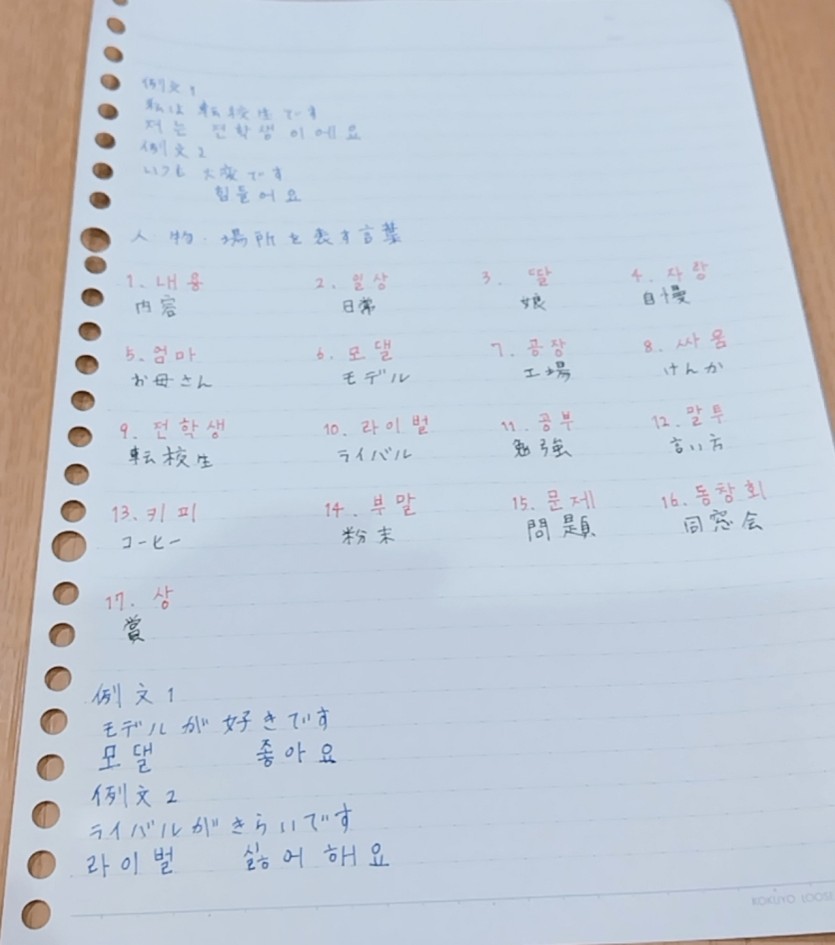 例文1
私は 転校生です
저는 전학생이에요
例文2
いつも 大変です
힘들어요
人物・場所を表す言葉
1. 내용 2. 일상 3. 딸 4. 자랑
内容 日常 娘 自慢
5. 엄마 6. 모델 7. 공장 8. 싸움
お母さん モデル 工場 けんか
9. 전학생 10. 라이벌 11. 공부 12. 말투
転校生 ライバル 勉強 言い方
13. 커피 14. 부말 15. 문제 16. 동창회
コーヒー 粉末 問題 同窓会
17. 상
賞
例文1
モデルが好きです
모델 좋아요
例文2
ライバルがきらいです
라이벌 싫어해요
KOKUYO LOOSE